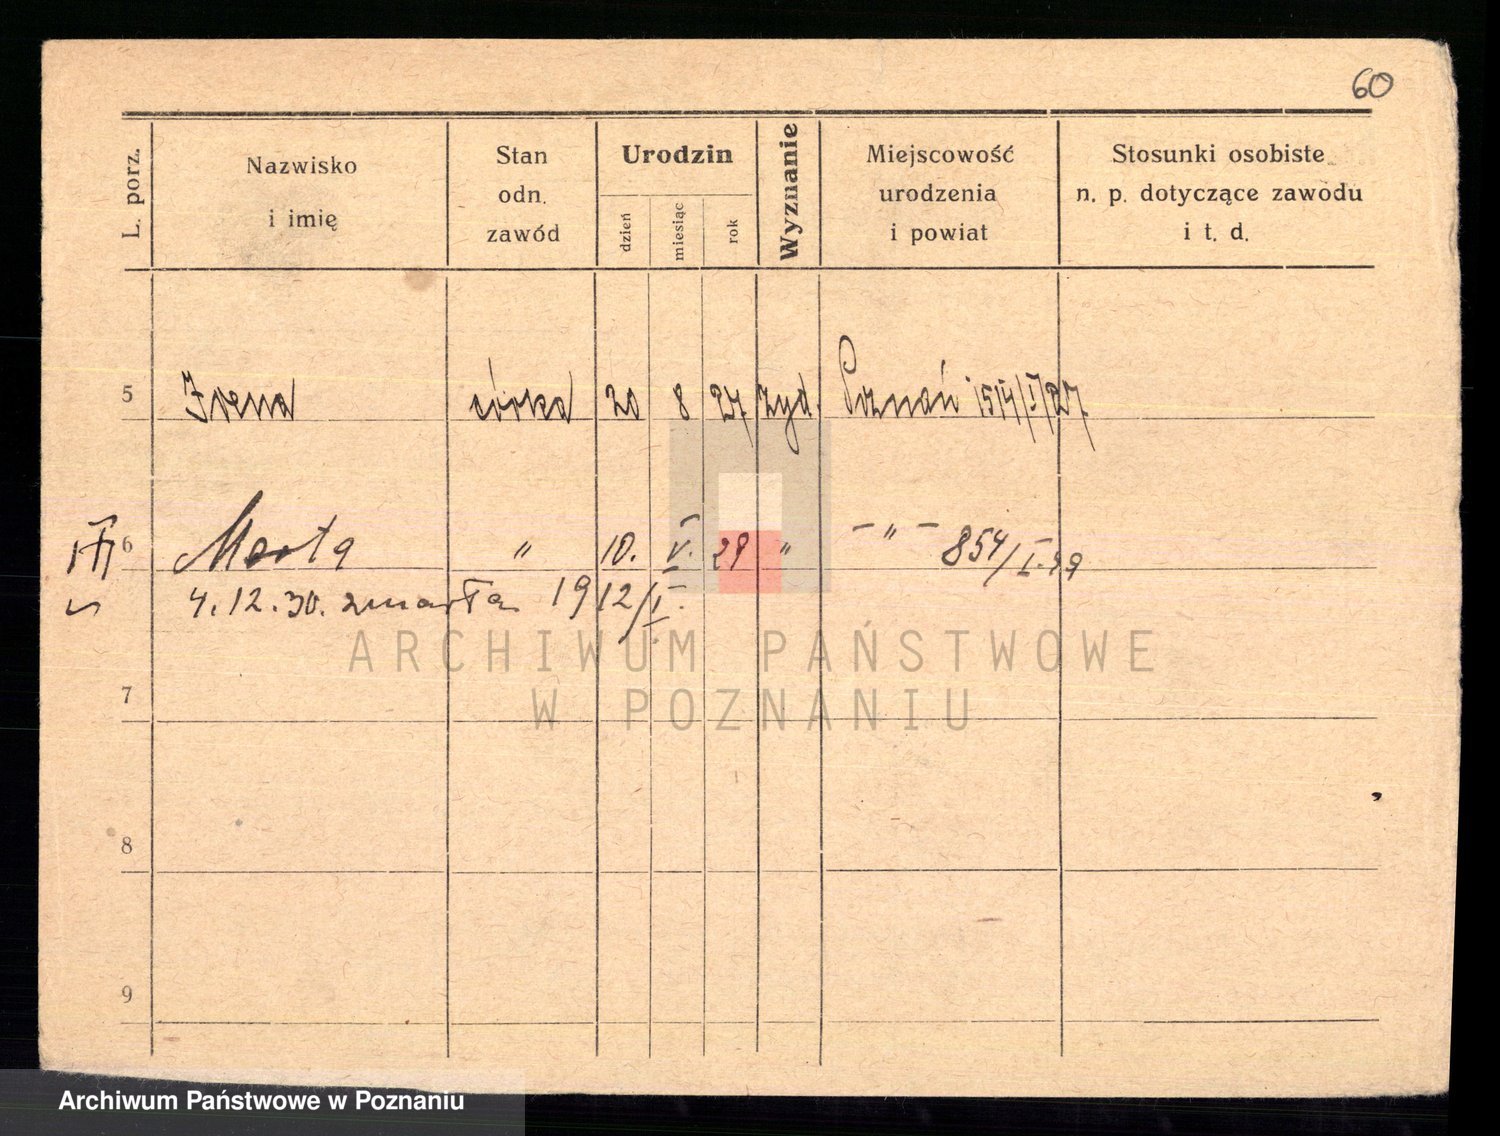 60
L. porz.
Nazwisko
i imię
Stan
odn.
zawód
Urodzin
dzień
miesiąc
rok
Wyznanie
Miejscowość
urodzenia
i powiat
Stosunki osobiste
n. p. dotyczące zawodu
i t. d.
5 Irena córka 20 8 27 żyd. Poznań 1514/I/27
III 6 Marta " 10. V. 29 " -"- 854/I.29
4.12.30. zmarła 1912/I.
7
8
9
ARCHIWUM PAŃSTWOWE
W POZNANIU
Archiwum Państwowe w Poznaniu